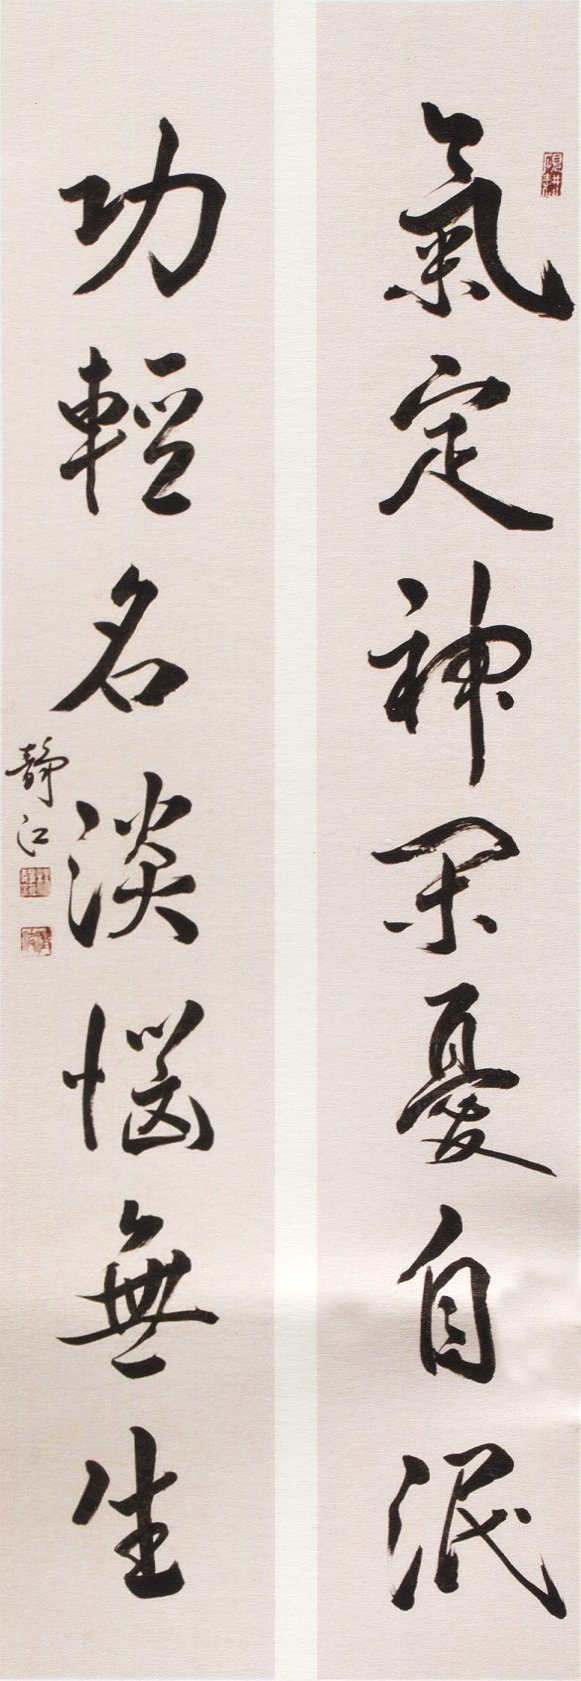 氣定神閑憂自泯
功輕名淡惱無生
靜江